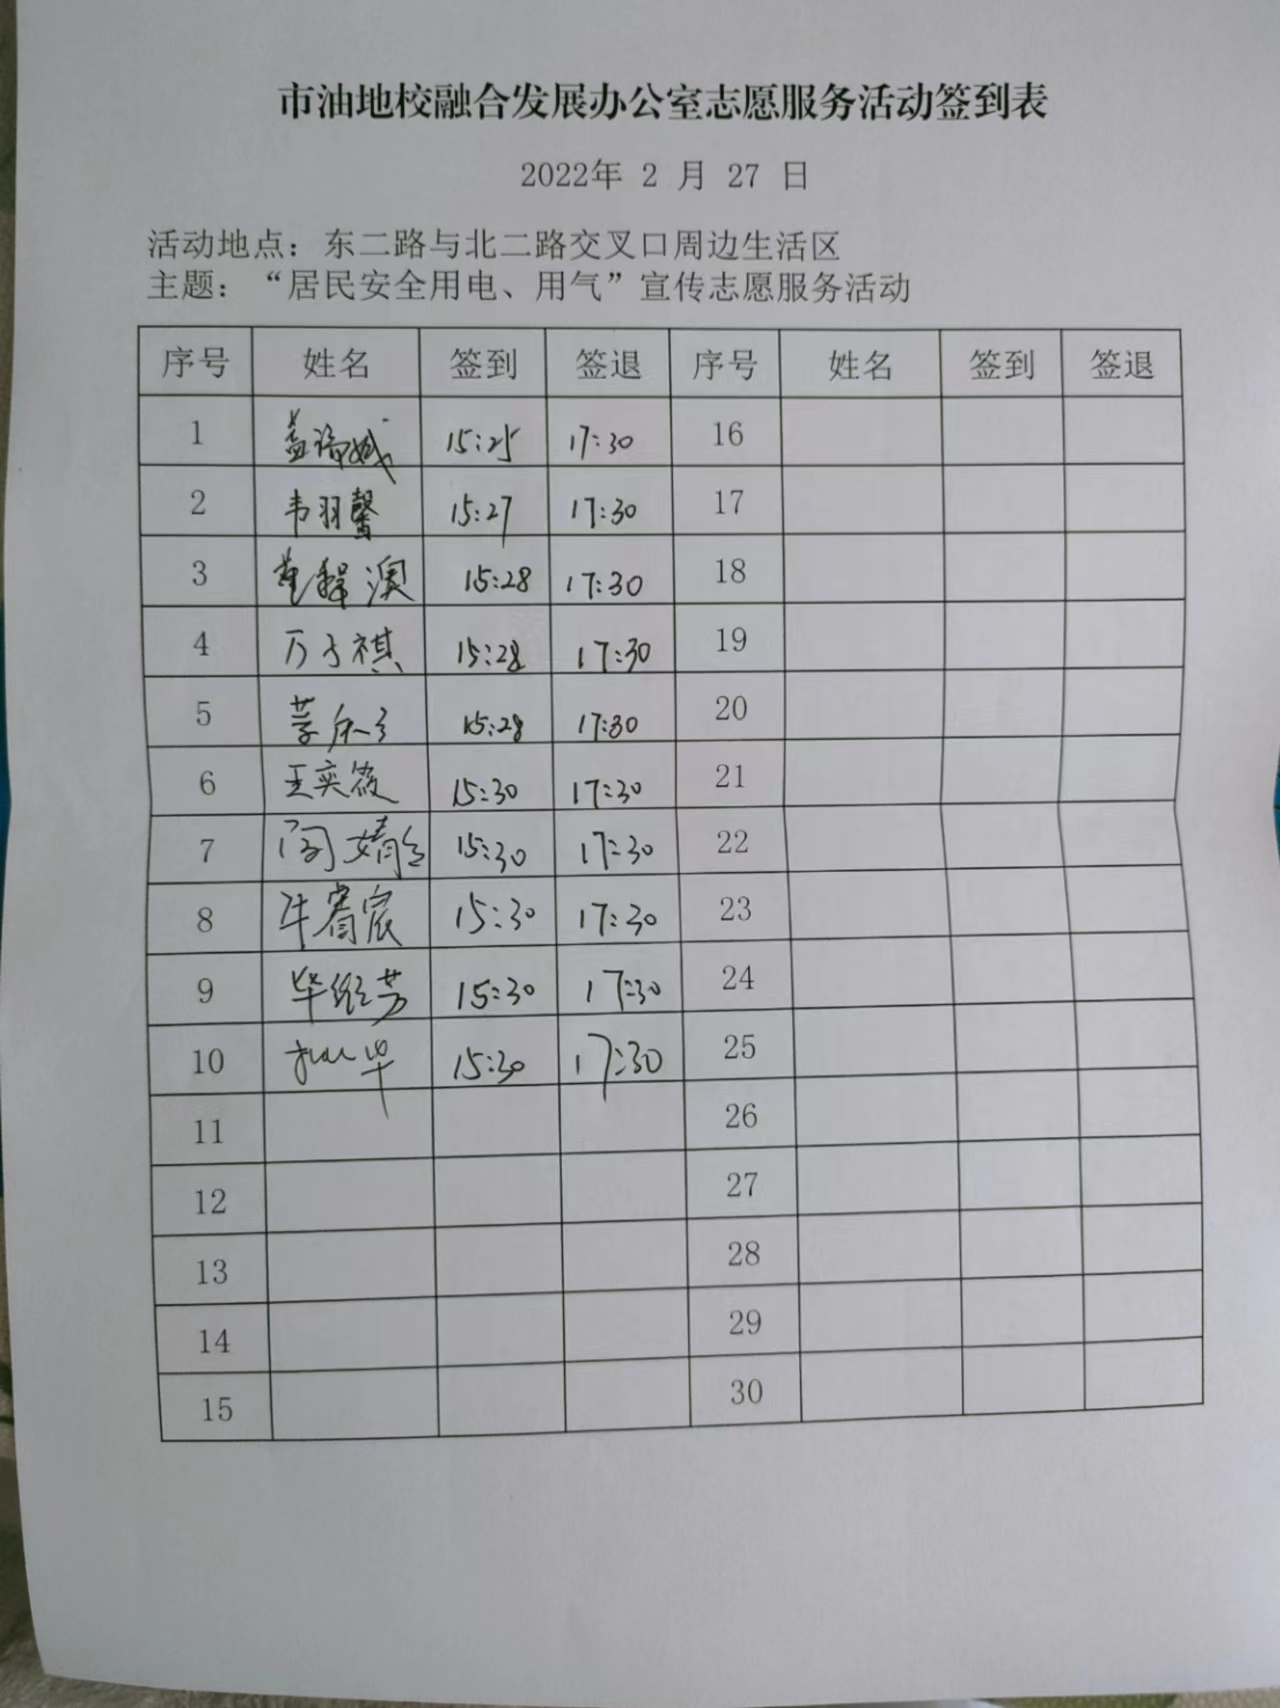 市油地校融合发展办公室志愿服务活动签到表
2022年 2 月 27 日
活动地点：东二路与北二路交叉口周边生活区
主题：“居民安全用电、用气”宣传志愿服务活动
序号 姓名 签到 签退 序号 姓名 签到 签退
1 15:25 17:30 16
2 韦羽馨 15:27 17:30 17
3 15:28 17:30 18
4 万子祺 15:28 17:30 19
5 15:28 17:30 20
6 王奕筱 15:30 17:30 21
7 15:30 17:30 22
8 牛睿宸 15:30 17:30 23
9 15:30 17:30 24
10 15:30 17:30 25
11 26
12 27
13 28
14 29
15 30